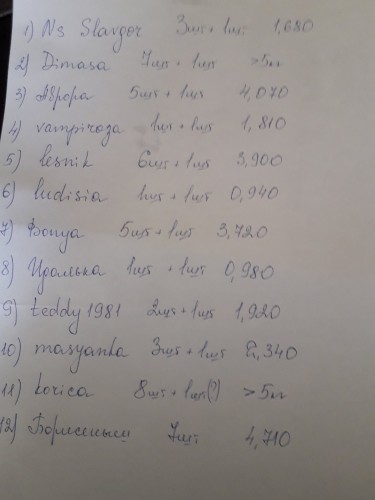 1) Ns Slavgor 3шт + 1шт 1,680
2) Dimasa 7шт + 1шт >5кг
3) Аврора 5шт + 1шт 4,070
4) vampiroza 1шт + 1шт 1,810
5) lesnik 6шт + 1шт 3,900
6) ludisia 1шт + 1шт 0,940
7) Bonya 5шт + 1шт 3,720
8) Уралька 1шт + 1шт 0,980
9) teddy 1981 2шт + 1шт 1,920
10) masyanka 3шт + 1шт 2,340
11) korica 8шт + 1шт(?) >5кг
12) 7шт 4,710